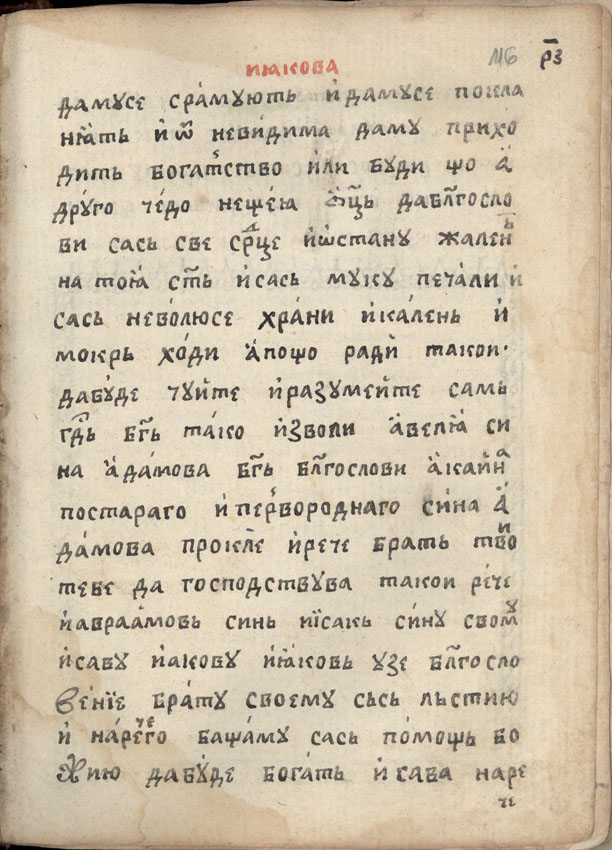 иꙗкова 116 р҃з
дамусе срамують и дамусе покла
нꙗть и ѿ невидима даму прихо
дить богатство или буди що а҆
друго чедо нещеꙗ ѡц҃ь да блг҃осло
ви сась све срд҃це и ѡстану жаленъ
на тоꙗ ст҃ь и сась муку печали и
сась неволюсе храни и калень и
мокрь ходи а пощо ради такои·
да буде чуйте и разумейте самь
гд҃ь бг҃ь тако изволи авелꙗ си
на адамова бг҃ь блг҃ослови а каина
постараго и первороднаго сина а
дамова прокле и рече брать твои
тебе да господствува такои рече
и авраамовь синь иїсакь сину свому
исаву и акову и ꙗковь узе блг҃осло
венїе брату своему сьсь льстию
и наречего бащаму сась помощь бо
жию да буде богать и сава наре
че